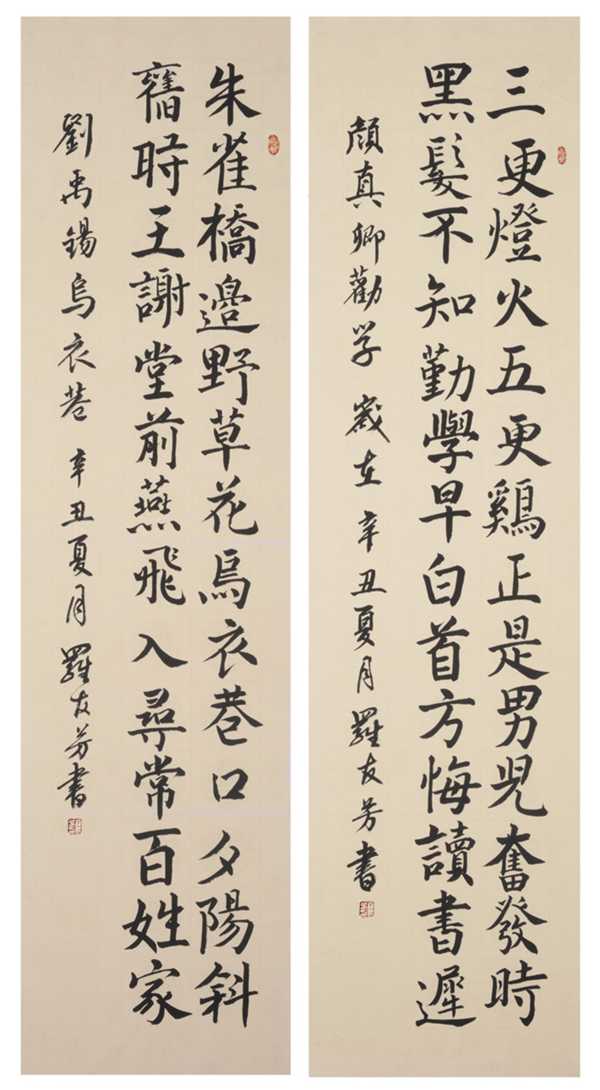 三更燈火五更鷄正是男児奮發時
黑髮不知勤學早白首方悔讀書遲
顔真卿勸学 歲在辛丑夏月羅友芳書
朱雀橋邊野草花烏衣巷口夕陽斜
舊時王謝堂前燕飛入尋常百姓家
劉禹錫烏衣巷 辛丑夏月羅友芳書